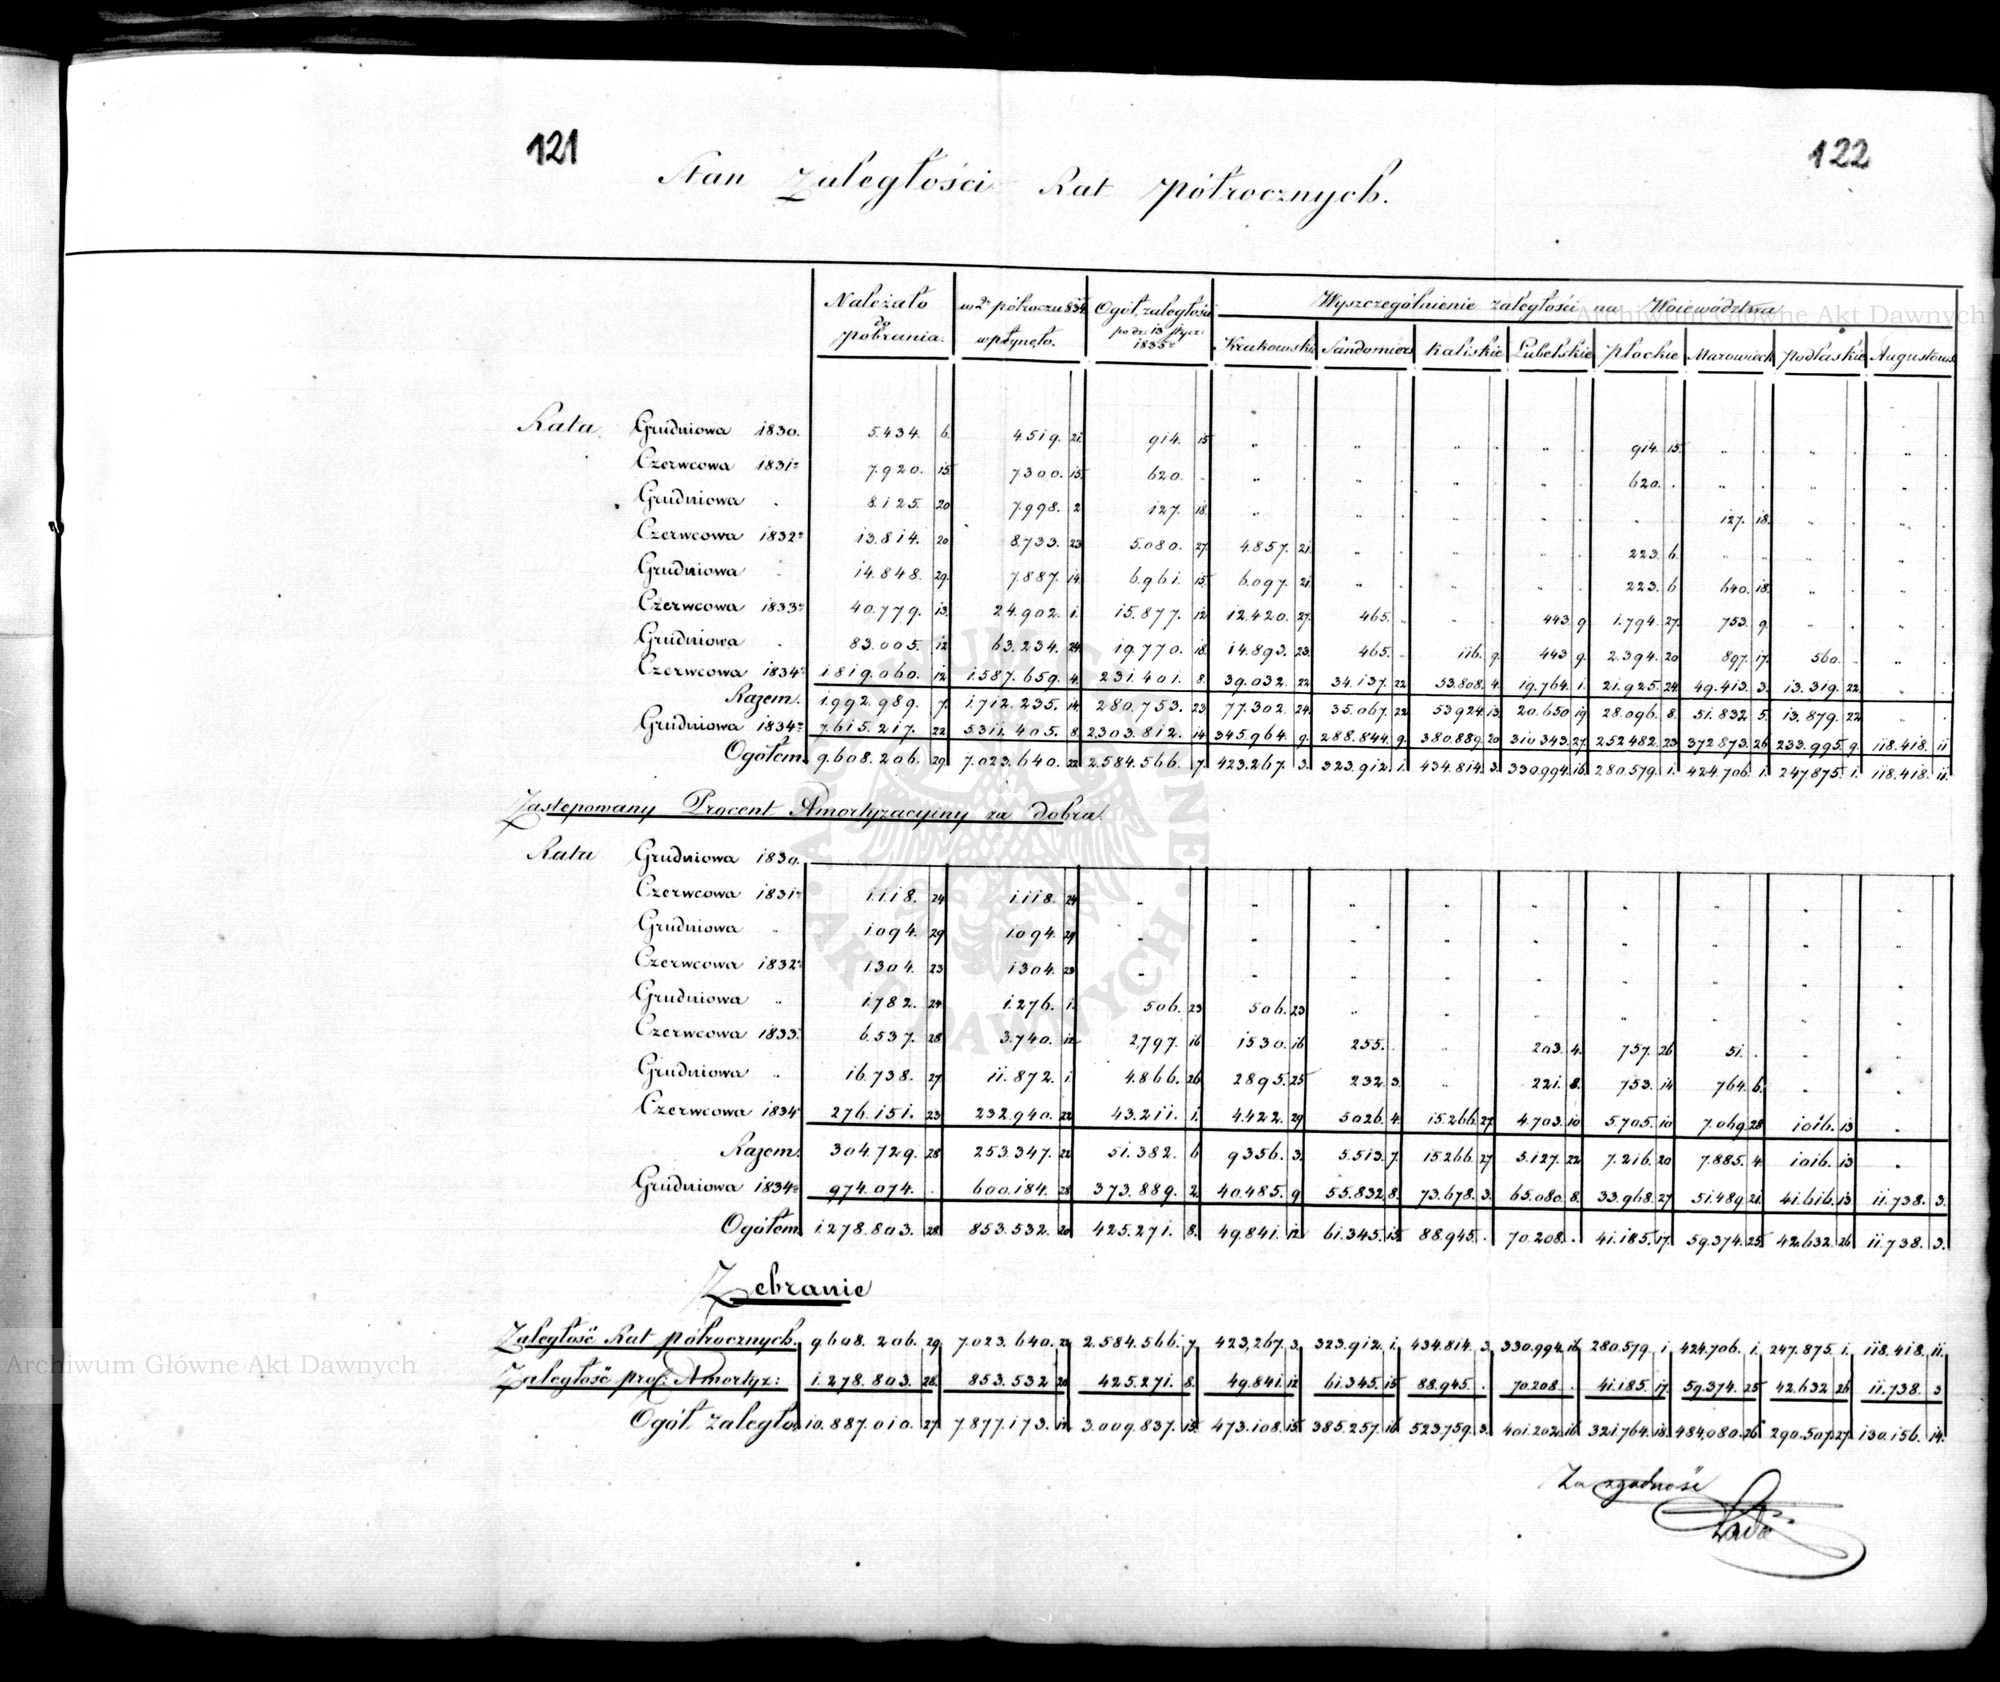 121
122
Stan Zaległości Rat Półrocznych.
Należało do pobrania. w 2m półroczu 834 wpłynęło. Ogół zaległości po dn. 13 Stycz: 1835r Wyszczególnienie zaległości na Województwa
Krakowskie Sandomiers Kaliskie Lubelskie Płockie Mazowieck Podlaskie Augustows
Rata Grudniowa 1830. 5.434. 6. 4519. 21. 914. 15 " . " . " . " . 914. 15. " . " . " .
Czerwcowa 1831r 7.920. 15 7300. 15. 620. . " . " . " . " . 620. . " . " . " .
Grudniowa . 8.125. 20 7.998. 2 127. 18. " . " . " . " . " . 127. 18. " . " .
Czerwcowa 1832r 13.814. 20 8.733. 23 5.080. 27. 4.857. 21. " . " . " . 223. 6. " . " . " .
Grudniowa . 14.848. 29. 7.887. 14. 6.961. 15. 6.097. 21. " . " . " . 223. 6 640. 18. " . " .
Czerwcowa 1833r 40.779. 13. 24.902. 1. 15.877. 12 12.420. 27. 465. . " . 443. 9. 1.794. 27. 753. 9. " . " .
Grudniowa . 83.005. 12 63.234. 24. 19.770. 18. 14.893. 23. 465. . 116. 9. 443. 9. 2.394. 20 897. 17. 560. . " .
Czerwcowa 1834r 1.819.060. 12. 1.587.659. 4. 231.401. 8. 39.032. 22 34.137. 22 53.808. 4. 19.764. 1. 21.925. 24. 49.413. 3. 13.319. 22. " .
Razem. 1.992.989. 7. 1.712.235. 14. 280.753. 23 77.302. 24. 35.067. 22 53924. 13. 20.650 19 28.096. 8. 51.832 5. 13.879. 22 " .
Grudniowa 1834r 7.615.217. 22 5311.405. 8. 2303.812. 14 345.964. 9. 288.844. 9. 380.889. 20 310343. 27. 252482. 23 372873. 26 233.995. 9. 118.418. 11
Ogółem 9.608.206. 29 7.023.640. 22 2.584.566. 7 423.267. 3. 323.912. 1. 434.814. 3. 330.994. 16. 280.579. 1. 424.706. 1. 247875. 1. 118.418. 11.
Zastępowany Procent Amortyzacyiny za dobra.
Rata Grudniowa 1830.
Czerwcowa 1831r 1.118. 24 1.118. 24 " " " " " " " " "
Grudniowa " 1.094. 29 1.094. 29 " " " " " " " " "
Czerwcowa 1832r 1.304. 23 1304. 23 " " " " " " " " "
Grudniowa " 1.782. 24 1.276. 1. 506. 23 506. 23 " " " " " " "
Czerwcowa 1833. 6.537. 28 3.740. 12 2,797. 16 1530. 16 255. . " 203. 4. 757. 26 51. . " "
Grudniowa " 16.738. 27 11.872. 1. 4.866. 26 2895. 25 232. 3. " 221. 8. 753. 14 764. 6. " "
Czerwcowa 1834 276.151. 23 232.940. 22 43.211. 1. 4.422. 29 5026. 4. 15.266. 27. 4.703. 10 5.705. 10 7.069. 28 1016. 13 "
Razem. 304.729. 28 253.347. 22 51.382. 6 9356. 3. 5.513. 7. 15266. 27 5.127. 22 7.216. 20 7.885. 4. 1016. 13 "
Grudniowa 1834r 974.074. . 600.184. 28 373.889. 2. 40.485. 9 55.832. 8. 73.678. 3. 65.080. 8. 33.968. 27 51.489. 21. 41.616. 13 11.738. 3.
Ogółem 1.278.803. 28. 853.532. 20 425.271. 8. 49.841. 12 61.345. 15 88.945. . 70.208. . 41.185. 17. 59.374. 25 42.632. 26 11.738. 3.
Zebranie
Zaległość Rat półrocznych. 9.608.206. 29. 7.023.640. 22 2.584.566. 7. 423,267. 3. 323.912. 1. 434.814. 3. 330.994. 16 280.579. 1 424.706. 1. 247.875. 1. 118.418. 11.
Zaległość proc. Amortyz: 1.278.803. 28. 853.532 20 425.271. 8. 49.841. 12 61.345. 15 88.945. . 70.208. . 41.185. 17. 59.374. 25 42.632 26 11.738. 3
Ogół zaległo. 10.887.010. 27 7.877.173. 12. 3.009.837. 15. 473.108. 15. 385.257. 16 523,759. 3. 401.202. 16 321.764. 18. 484,080. 26 290.507. 27 130.156. 14.
Za zgodność
Archiwum Główne Akt Dawnych
Archiwum Główne Akt Dawnych